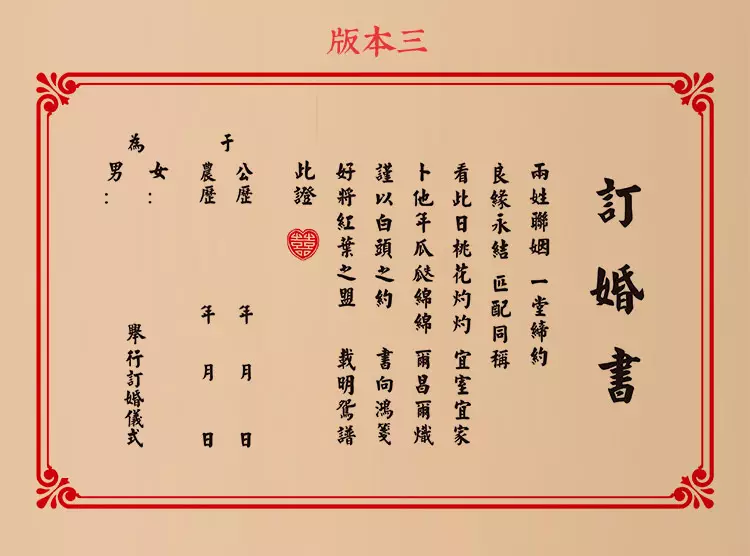 版本三
訂婚書
兩姓聯姻 一堂締約
良緣永結 匹配同稱
看此日桃花灼灼 宜室宜家
卜他年瓜瓞綿綿 爾昌爾熾
謹以白頭之約 書向鴻箋
好將紅葉之盟 載明鴛譜
此證
囍
于
公歷 年 月 日
農歷 年 月 日
為
女：
男：
舉行訂婚儀式